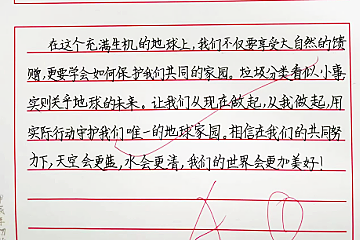 在这个充满生机的地球上，我们不仅要享受大自然的馈
赠，更要学会如何保护我们共同的家园。垃圾分类看似小事，
实则关乎地球的未来。让我们从现在做起，从我做起，用
实际行动守护我们唯一的地球家园。相信在我们的共同努
力下，天空会更蓝，水会更清，我们的世界会更加美好！